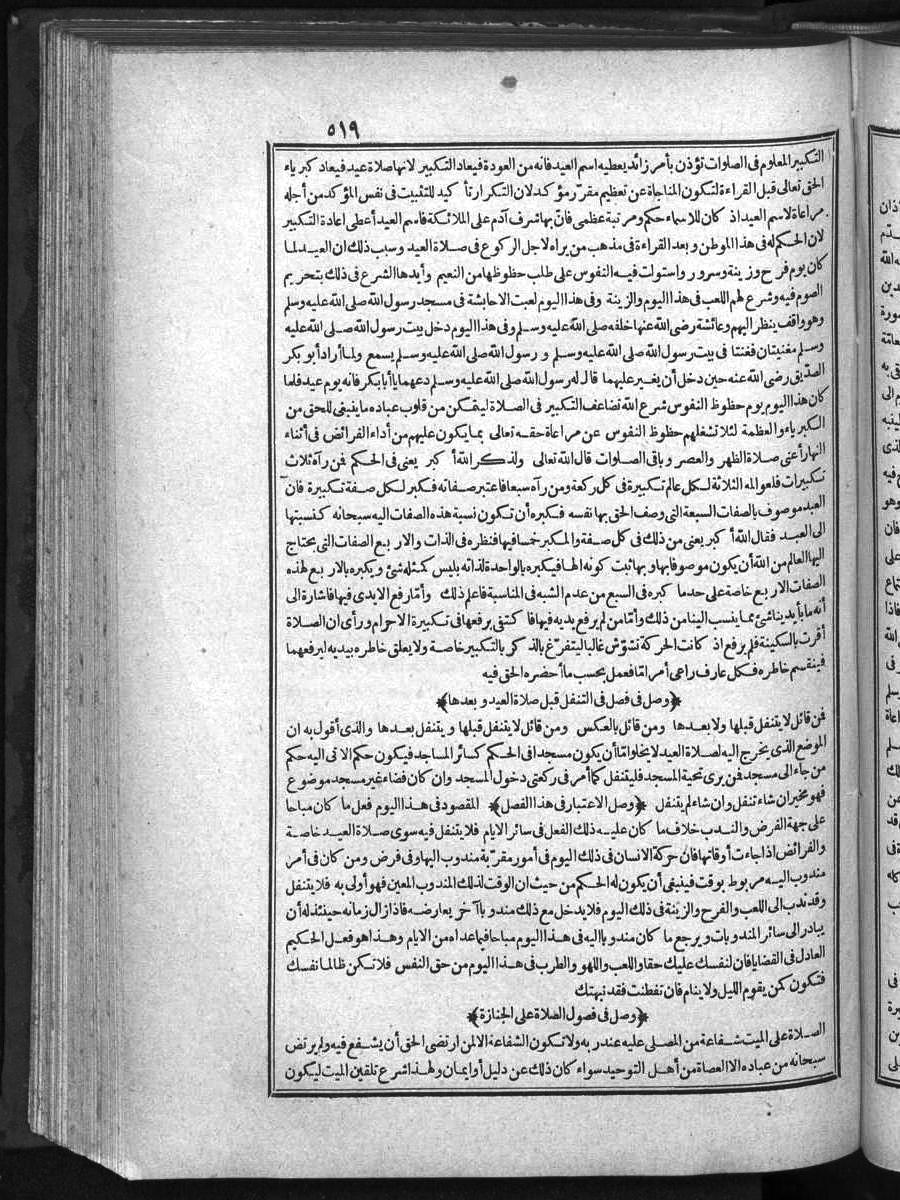 ٥١٩
التكبير المعلوم فى الصلوات تؤذن بأمر زائد يعطيه اسم العيد فانه من العودة فيعاد التكبير لانها صلاة عيد فيعاد كبرياء
الحق تعالى قبل القراءة لتكون المناجاة عن تعظيم مقرّر مؤكد لان التكرار تأكيد للتثبيت فى نفس المؤكد من أجله
مراعاة لاسم العيد اذ كان للاسماء حكم ومرتبة عظمى فانّ بها شرف آدم على الملائكة فاسم العيد أعطى اعادة التكبير
لان الحكم له فى هذا الموطن وبعد القراءة فى مذهب من يراه لاجل الركوع فى صلاة العيد وسبب ذلك ان العيد لما
كان يوم فرح وزينة وسرور واستولت فيه النفوس على طلب حظوظها من النعيم وأيدها الشرع فى ذلك بتحريم
الصوم فيه وشرع لهم اللعب فى هذا اليوم والزينة وفى هذا اليوم لعبت الاحابشة فى مسجد رسول الله صلى الله عليه وسلم
وهو واقف ينظر اليهم وعائشة رضى الله عنها خلفه صلى الله عليه وسلم وفى هذا اليوم دخل بيت رسول الله صلى الله عليه
وسلم مغنيتان فغنتا فى بيت رسول الله صلى الله عليه وسلم ورسول الله صلى الله عليه وسلم يسمع ولما أراد أبو بكر
الصدّيق رضى الله عنه حين دخل أن يغير عليهما قال له رسول الله صلى الله عليه وسلم دعهما يا أبا بكر فانه يوم عيد فلما
كان هذا اليوم يوم حظوظ النفوس شرع الله تضاعف التكبير فى الصلاة ليتمكن من قلوب عباده ما ينبغى للحق من
الكبرياء والعظمة لئلا تشغلهم حظوظ النفوس عن مراعاة حقه تعالى بما يكون عليهم من أداء الفرائض فى أثناء
النهار أعنى صلاة الظهر والعصر وباقى الصلوات قال الله تعالى ولذكر الله أكبر يعنى فى الحكم فمن رآه ثلاث
تكبيرات فلعوالمه الثلاثة لكل عالم تكبيرة فى كل ركعة ومن رآه سبعا فاعتبر صفاته فكبر لكل صفة تكبيرة فان
العبد موصوف بالصفات السبعة التى وصف الحق بها نفسه فكبره أن تكون نسبة هذه الصفات اليه سبحانه كنسبتها
الى العبد فقال الله أكبر يعنى من ذلك فى كل صفة والمكبر خمسا فيها فنظره فى الذات والاربع الصفات التى يحتاج
اليها العالم من الله أن يكون موصوفا بها وبها ثبت كونه الها فيكبره بالواحدة لذاته بليس كمثله شئ ويكبره بالاربع لهذه
الصفات الاربع خاصة على حد ما كبره فى السبع من عدم الشبه فى المناسبة فاعلم ذلك وأمّا رفع الايدى فيها فاشارة الى
أنه ما بأيدينا شئ مما ينسب الينا من ذلك وأمّا من لم يرفع يديه فيها فاكتفى برفعها فى تكبيرة الاحرام ورأى ان الصلاة
أقرت بالسكينة فلم يرفع اذ كانت الحركة تشوّش غالبا ليتفرّغ بالذكر بالتكبير خاصة ولا يعلق خاطره بيديه ليرفعهما
فينقسم خاطره فكل عارف راعى أمرا ما فعمل بحسب ما أحضره الحق فيه
﴿وصل فى فصل فى التنفل قبل صلاة العيد وبعدها﴾
فمن قائل لا يتنفل قبلها ولا بعدها ومن قائل بالعكس ومن قائل لا يتنفل قبلها ويتنفل بعدها والذى أقول به ان
الموضع الذى يخرج اليه لصلاة العيد لا يخلو امّا أن يكون مسجدا فى الحكم كسائر المساجد فيكون حكم الآتى اليه حكم
من جاء الى مسجد فمن يرى تحية المسجد فليتنفل كما أمر فى ركعتى دخول المسجد وان كان فضاء غير مسجد موضوع
فهو مخير ان شاء تنفل وان شاء لم يتنفل ﴿وصل الاعتبار فى هذا الفصل﴾ المقصود فى هذا اليوم فعل ما كان مباحا
على جهة الفرض والندب خلاف ما كان عليه ذلك الفعل فى سائر الايام فلا يتنفل فيه سوى صلاة العيد خاصة
والفرائض اذا جاءت أوقاتها فان حركة الانسان فى ذلك اليوم فى أمور مقرّبة مندوب اليها وفى فرض ومن كان فى أمر
مندوب اليه مربوط بوقت فينبغى أن يكون له الحكم من حيث ان الوقت لذلك المندوب المعين فهو أولى به فلا يتنفل
وقد ندب الى اللعب والفرح والزينة فى ذلك اليوم فلا يدخل مع ذلك مندوبا آخر يعارضه فاذا زال زمانه حينئذ له أن
يبادر الى سائر المندوبات ويرجع ما كان مندوبا اليه فى هذا اليوم مباحا فيما عداه من الايام وهذا هو فعل الحكيم
العادل فى القضايا فان لنفسك عليك حقا واللعب واللهو والطرب فى هذا اليوم من حق النفس فلا تكن ظالما نفسك
فتكون كمن يقوم الليل ولا ينام فان تفطنت فقد نبهتك
﴿وصل فى فصول الصلاة على الجنازة﴾
الصلاة على الميت شفاعة من المصلى عليه عند ربه ولا تكون الشفاعة الا لمن ارتضى الحق أن يشفع فيه ولم يرتض
سبحانه من عباده الا العصاة من أهل التوحيد سواء كان ذلك عن دليل أو ايمان ولهذا شرع تلقين الميت ليكون